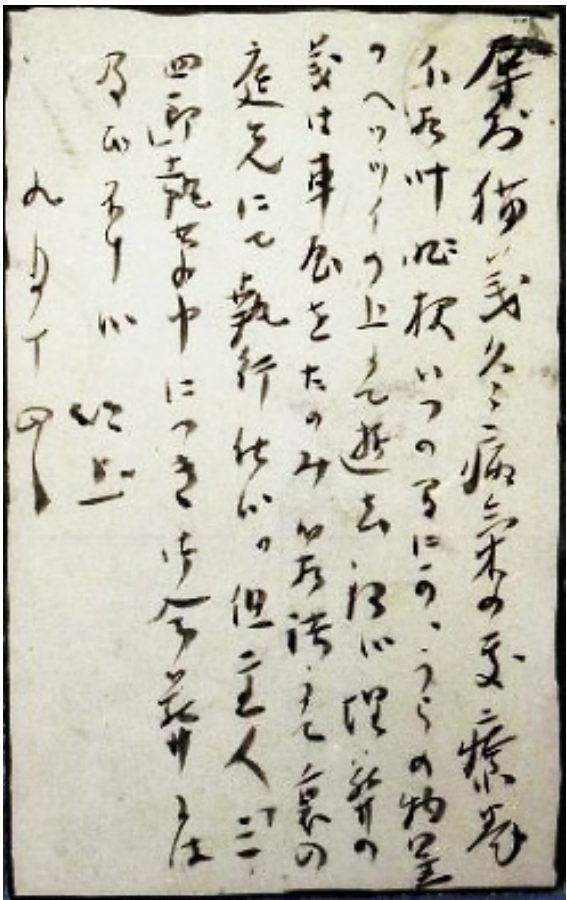 辱知猫義久々病気の処療養
不相叶昨夜いつの間にか、うらの物置
のヘツツイの上にて逝去致候埋葬の
義は車屋をたのみ箱詰にて裏の
庭先にて執行仕候。但主人「三
四郎」執筆中につき御会葬には
及び不申候 以上
九月十四日